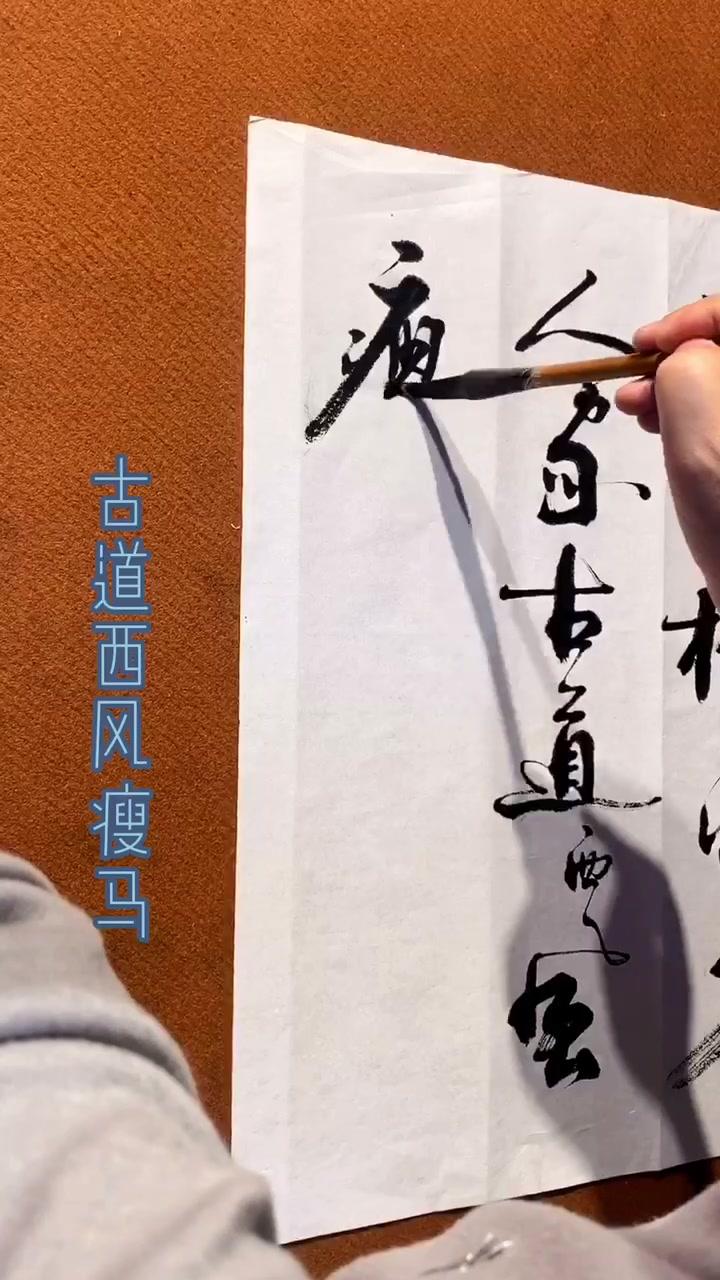 人家古道西風
瘦
古道西风瘦马